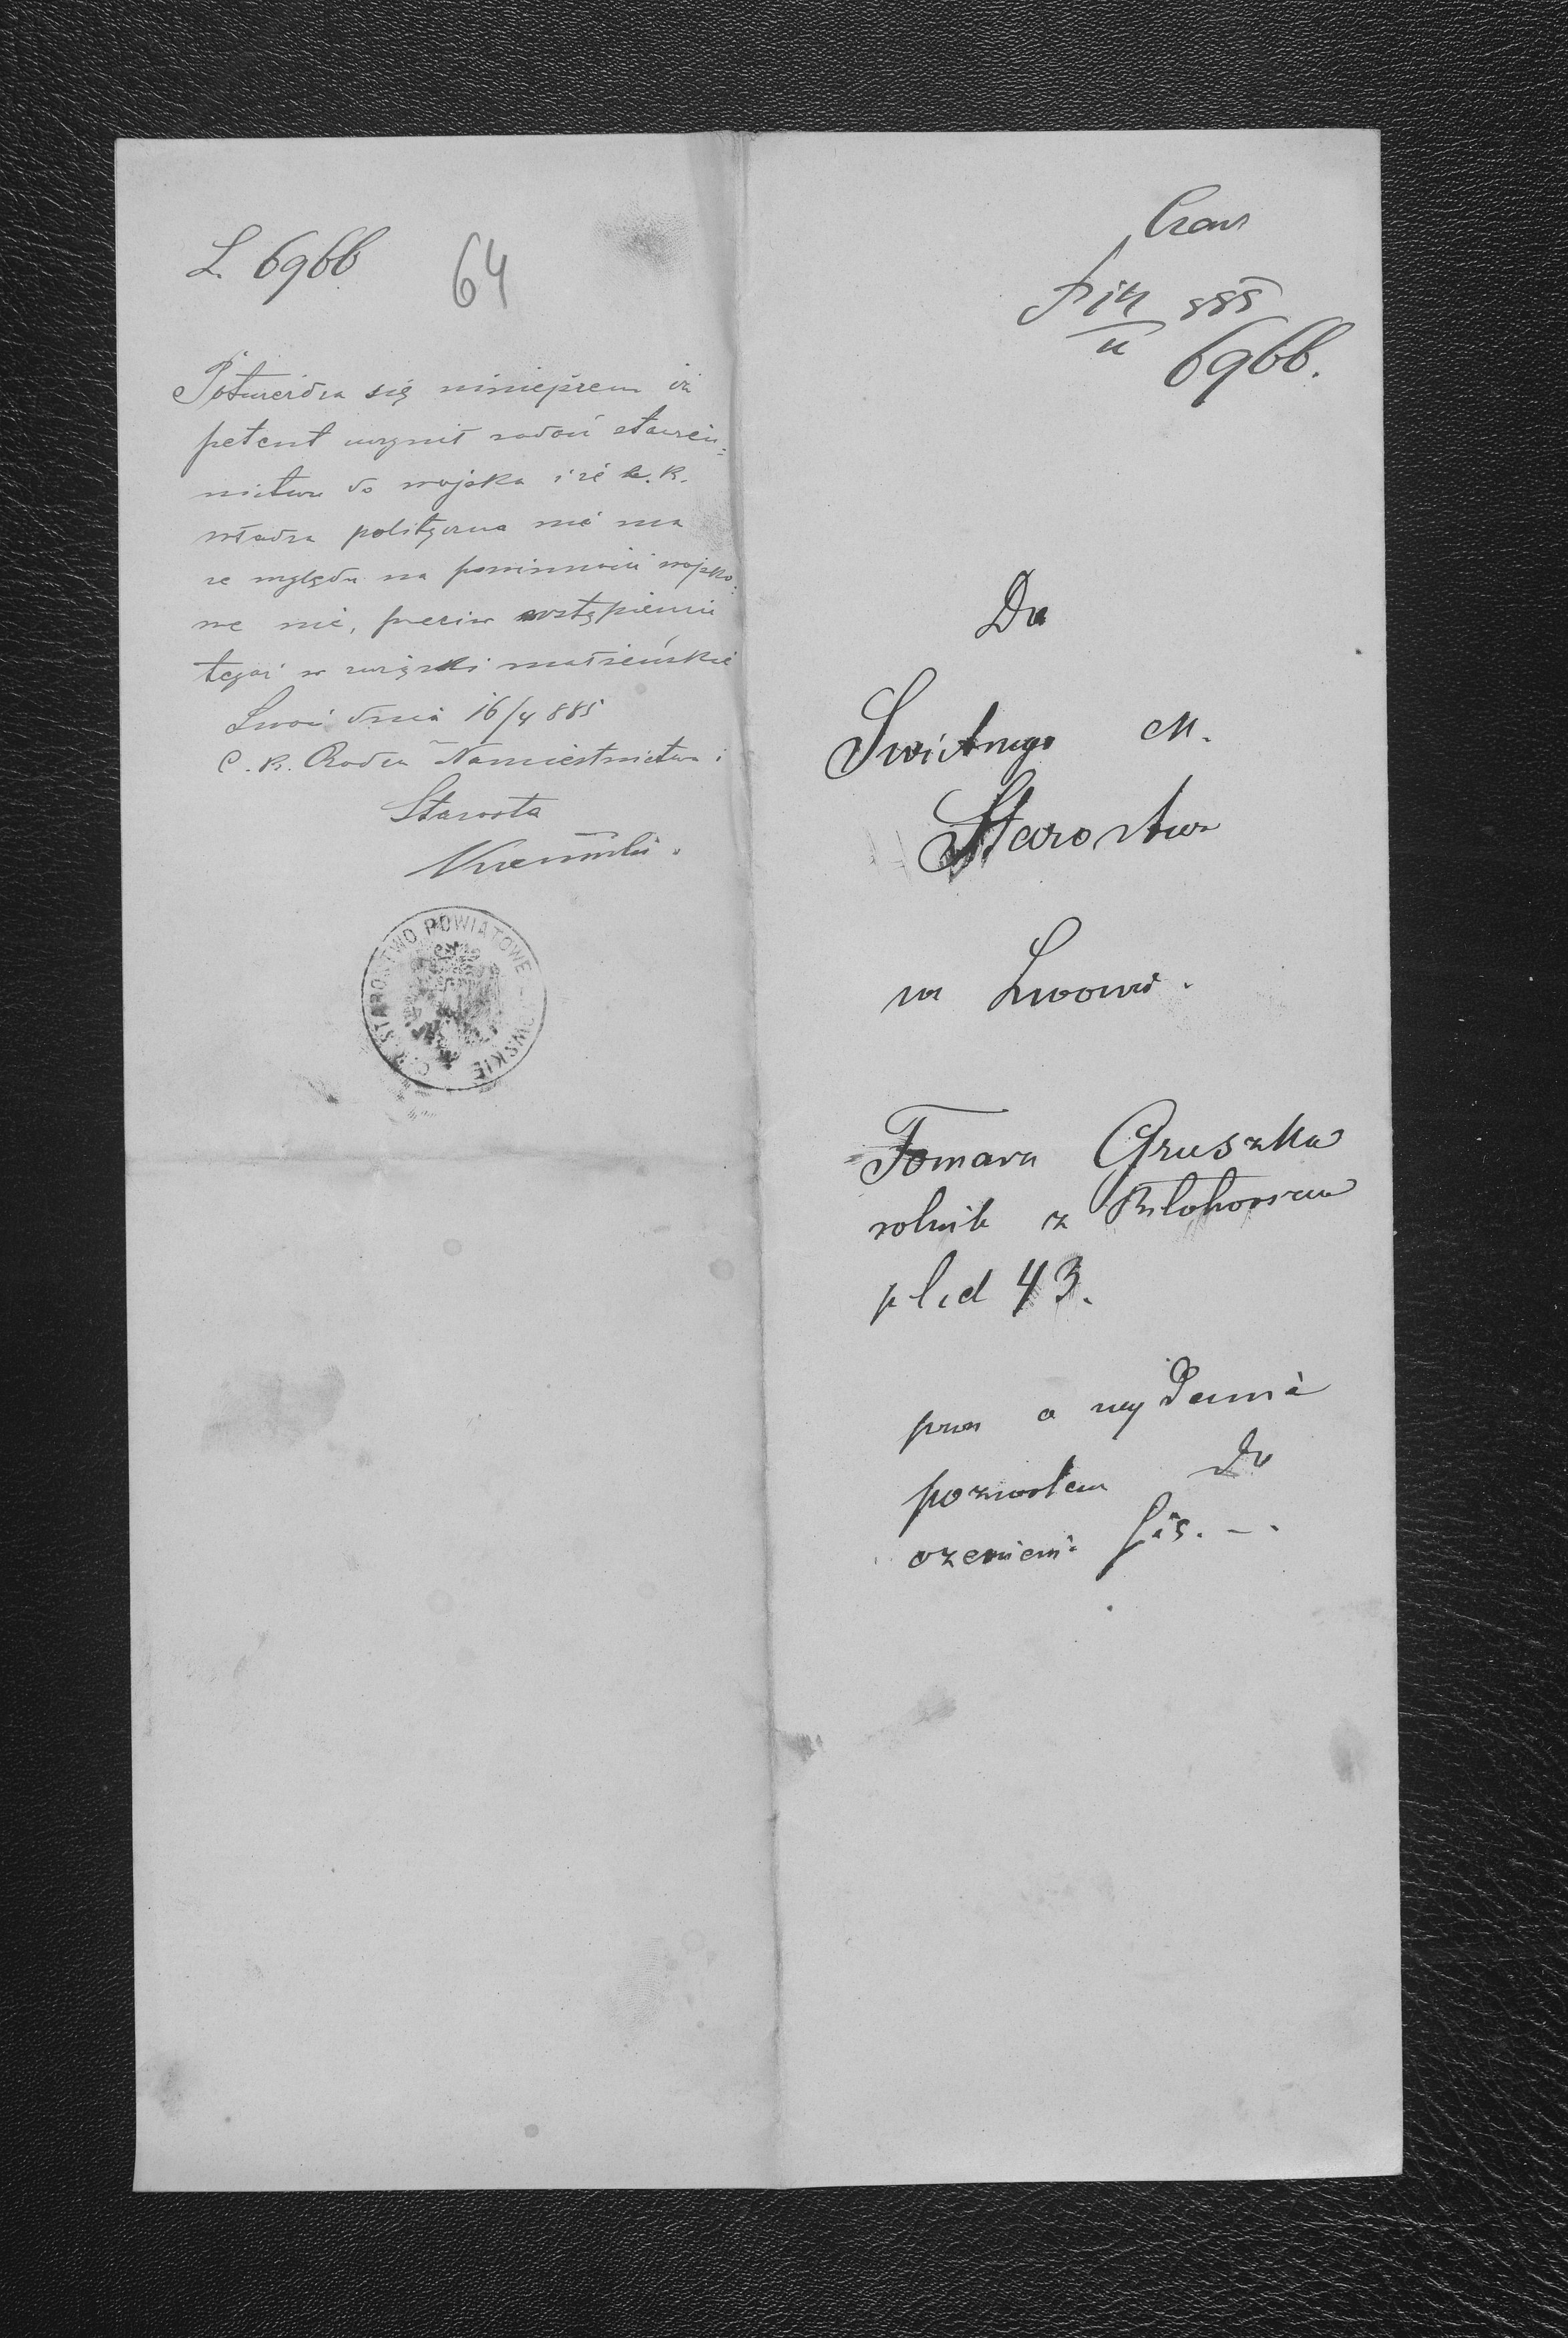 L. 6966
64
Potwierdza się niniejszem iż
petent uczynił zadość stawien=
nictwu do wojska i że c. k.
władza polityczna nie ma
ze względu na powinności wojsko=
we nic, przeciw wstąpieniu
tegoż w związki małżeńskie
Lwów dnia 16/4 885
C. k. Radca Namiestnictwa i
Starosta
C. K. STAROSTWO POWIATOWE LWOWSKIE
885
6966.
Do
Swietnego M.
Starostwa
we Lwowie.
Tomasz Gruszka
rolnik z Biłohorszcza
p l. d 43.
prosi o wydanie
pozwolenia do
ozenienia się. -.